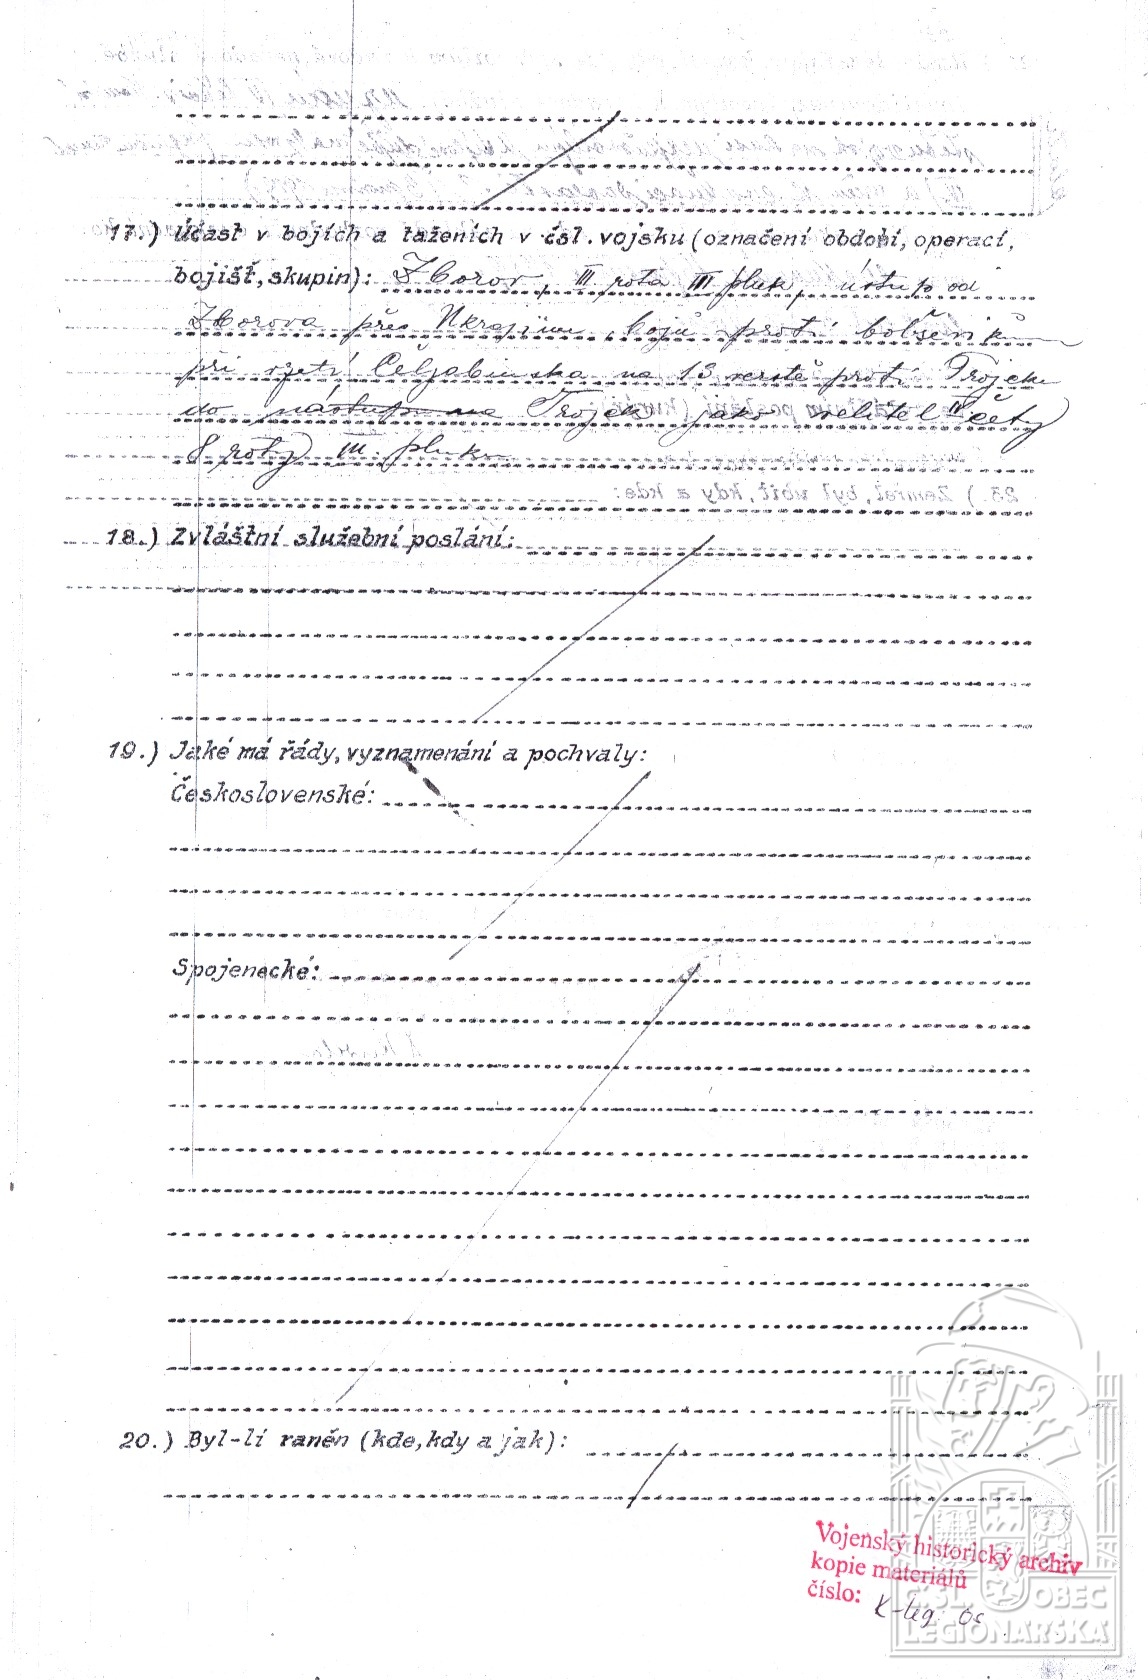 17.) Účast v bojích a taženích v čsl. vojsku (označení období, operací,
bojišť, skupin): Zborov, III rota III pluk, ústup od
Zborova přes Ukrajinu, bojů proti bolševikům
při vzetí Čeljabinska na 13 verstě proti Trojcku
do nástupu na Trojck jako velitel IV čety
8 roty III. pluku
18.) Zvláštní služební poslání:
19.) Jaké má řády, vyznamenání a pochvaly:
Československé:
Spojenecké:
20.) Byl-li raněn (kde, kdy a jak):
Vojenský historický archiv
kopie materiálů
číslo: K-leg. os
ČSL. OBEC
LEGIONÁŘSKÁ